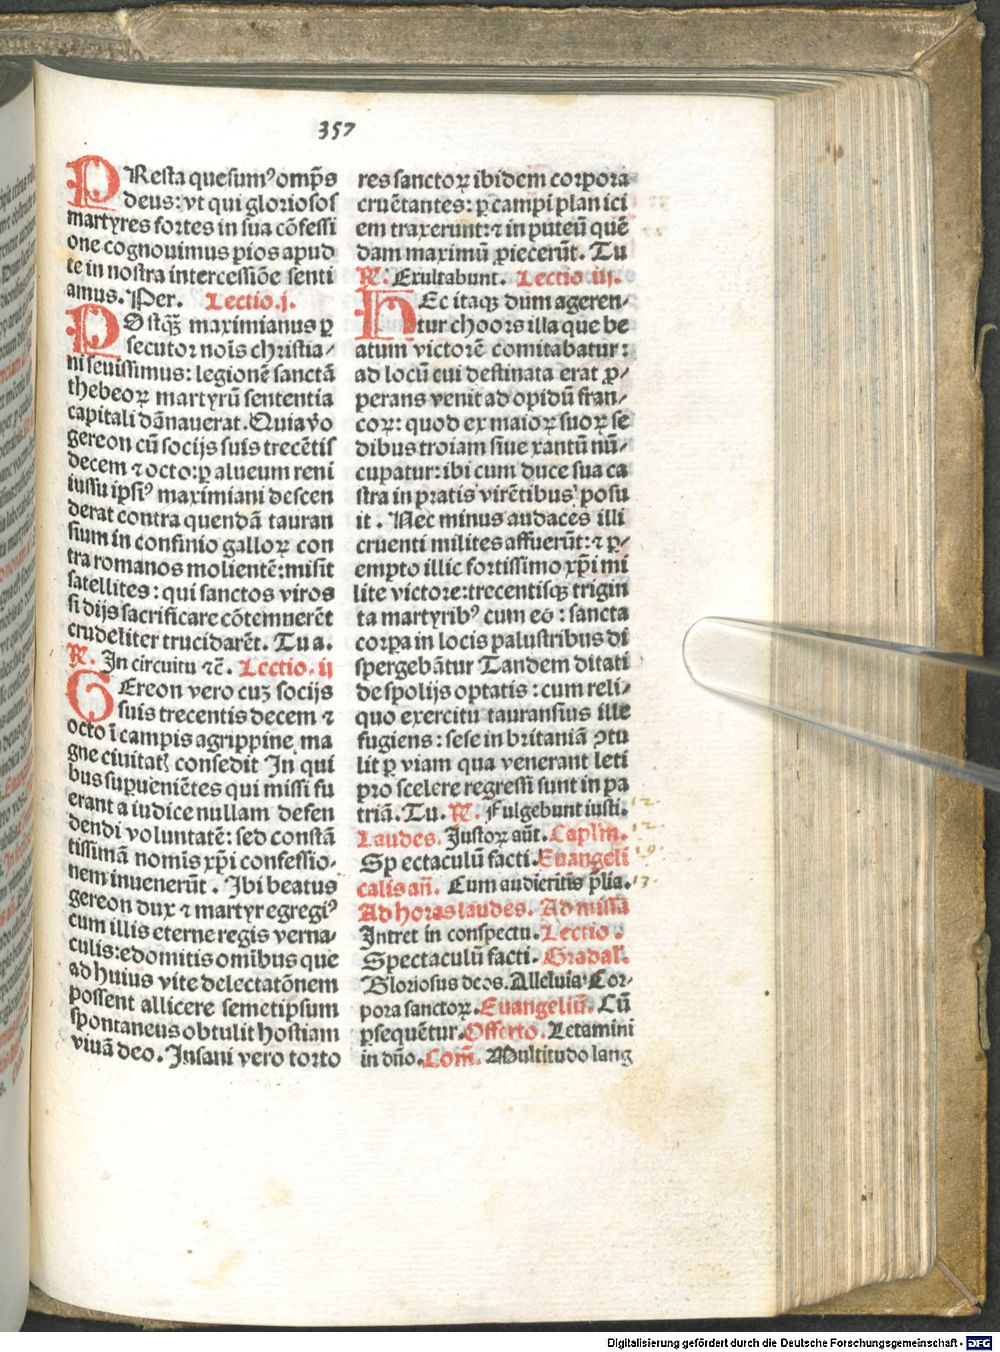 357
PResta quesumꝰ omp̄s
deus: vt qui gloriosos
martyres fortes in sua cōfessi
one cognouimus pios apud
te in nostra intercessiōe senti
amus. Per. Lectio .j.
POstqȝ maximianus ꝑ
secutor nōis christia/
ni seuissimus: legionē sanctā
thebeoꝝ martyrū sententia
capitali dānauerat. Quia v̄o
gereon cū socijs suis trecētis
decem ⁊ octo: ꝑ alueum reni
iussu ipsiꝰ maximiani descen
derat contra quendā tauran
sium in confinio galloꝝ con
tra romanos molientē: misit
satellites: qui sanctos viros
si dijs sacrificare cōtemnerēt
crudeliter trucidarēt. Tu a.
℟. In circuitu ⁊c̄. Lectio. ij
GEreon vero cuȝ socijs
suis trecentis decem ⁊
octo ī campis agrippine ma
gne ciuitatꝭ consedit In qui
bus suꝑueniētes qui missi fu
erant a iudice nullam defen
dendi voluntatē: sed constā
tissimā nomis xp̄i confessio-
nem inuenerūt. Ibi beatus
gereon dux ⁊ martyr egregiꝰ
cum illis eterne regis verna/
culis: edomitis omībus que
ad huius vite delectatōnem
possent allicere semetipsum
spontaneus obtulit hostiam
viuā deo. Insani vero torto
res sanctoꝝ ibidem corpora
cruētantes: ꝑ campi plan ici
em traxerunt: ⁊ in puteū quē
dam maximū ꝓiecerūt. Tu
℟. Exultabunt. Lectio iij.
HEc itaqȝ dum ageren-
tur choors illa que be
atum victorē comitabatur:
ad locū cui destinata erat ꝓ/
perans venit ad opidū fran/
coꝝ: quod ex maioꝝ suoꝝ se
dibus troiam siue xantū nū/
cupatur: ibi cum duce sua ca
stra in pratis virētibus posu
it. Nec minus audaces illi
cruenti milites affuerūt: ⁊ ꝑ-
empto illic fortissimo xp̄i mi
lite victore: trecentisqȝ trigin
ta martyribꝰ cum eo: sancta
corpa in locis palustribus di
spergebātur Tandem ditati
de spolijs optatis: cum reli/
quo exercitu tauransius ille
fugiens: sese in britaniā ꝯtu
lit ꝑ viam qua venerant leti
pro scelere regressi sunt in pa
triā. Tu. ℟. Fulgebunt iusti. 12.
Laudes. Justoꝝ aūt. Caplm̄. 12.
Spectaculū facti. Euangeli 19.
calis an̄. Cum audieritis p̄lia. 13.
Ad horas laudes. Ad missā
Intret in conspectu. Lectio.
Spectaculū facti. Gradal̄.
Gloriosus deos. Alleluia Cor-
pora sanctoꝝ. Euangeliū. Cū
ꝑsequētur. Offerto. Letamini
in dn̄o. Com̄. Multitudo lang
Digitalisierung gefördert durch die Deutsche Forschungsgemeinschaft - DFG